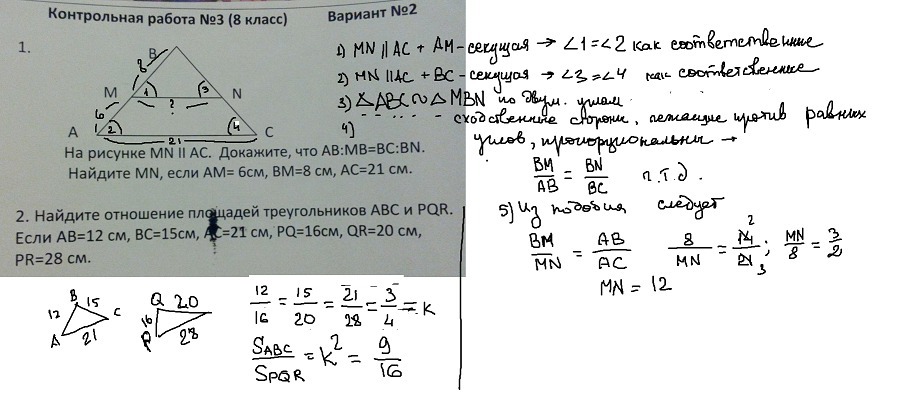 Контрольная работа №3 (8 класс) Вариант №2
1.
B
8
M 1 3 N
?
6
A 2 4 C
21
На рисунке MN II AC. Докажите, что AB:MB=BC:BN.
Найдите MN, если AM= 6см, BM=8 см, AC=21 см.
2. Найдите отношение площадей треугольников ABC и PQR.
Если AB=12 см, BC=15см, AC=21 см, PQ=16см, QR=20 см,
PR=28 см.
B 15
12 C
A 21
Q 20
16
P 28
12/16 = 15/20 = 21/28 = 3/4 = k
SABC/SPQR = k² = 9/16
1) MN || AC + AM - секущая → ∠1=∠2 как соответственные
2) MN || AC + BC - секущая → ∠3=∠4 как соответсвенные
3) △ABC ∾ △MBN по двум. углам
4) сходственные стороны, лежащие против равных
углов, пропорциональны →
BM/AB = BN/BC ч.т.д.
5) Из подобия следует
BM/MN = AB/AC 8/MN = 14/21 2 3 ; MN/8 = 3/2
MN = 12